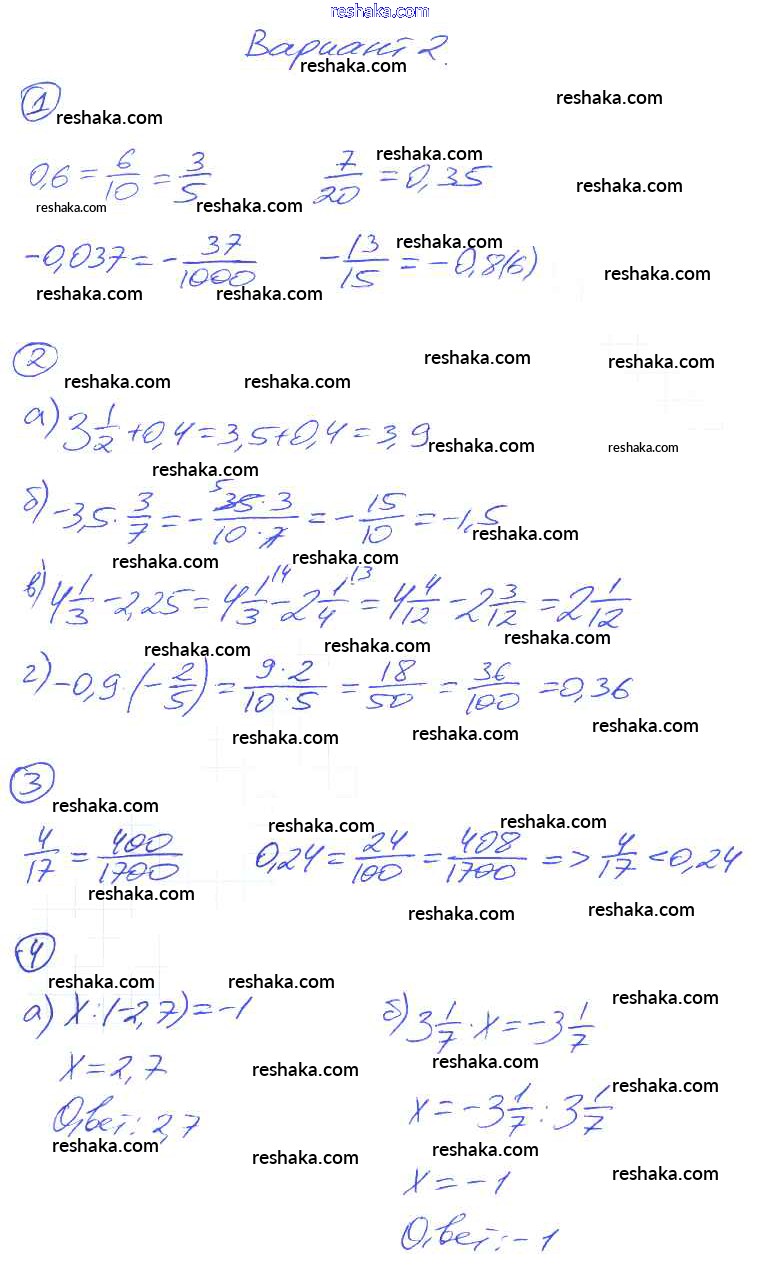 reshaka.com
Вариант 2.
reshaka.com
reshaka.com
1
reshaka.com
0,6 = 6/10 = 3/5    7/20 = 0,35
reshaka.com
reshaka.com
reshaka.com
reshaka.com
-0,037 = -37/1000    -13/15 = -0,8(6)
reshaka.com
reshaka.com
reshaka.com
reshaka.com
2
reshaka.com
reshaka.com
reshaka.com
reshaka.com
а) 3 1/2 + 0,4 = 3,5 + 0,4 = 3,9
reshaka.com
reshaka.com
reshaka.com
б) -3,5 · 3/7 = - 5 35 · 3/10 · 7 = -15/10 = -1,5
reshaka.com
reshaka.com
reshaka.com
в) 4 1/3 - 2,25 = 4 1/3 \4 - 2 1/4 \3 = 4 4/12 - 2 3/12 = 2 1/12
reshaka.com
reshaka.com
reshaka.com
г) -0,9 · (-2/5) = 9 · 2/10 · 5 = 18/50 = 36/100 = 0,36
reshaka.com
reshaka.com
reshaka.com
3
reshaka.com
reshaka.com
reshaka.com
4/17 = 400/1700    0,24 = 24/100 = 408/1700 => 4/17 < 0,24
reshaka.com
reshaka.com
reshaka.com
4
reshaka.com
reshaka.com
reshaka.com
а) x : (-2,7) = -1    б) 3 1/7 · x = -3 1/7
reshaka.com
reshaka.com
reshaka.com
x = 2,7    x = -3 1/7 : 3 1/7
Ответ: 2,7
reshaka.com
reshaka.com
reshaka.com
reshaka.com
x = -1
Ответ: -1